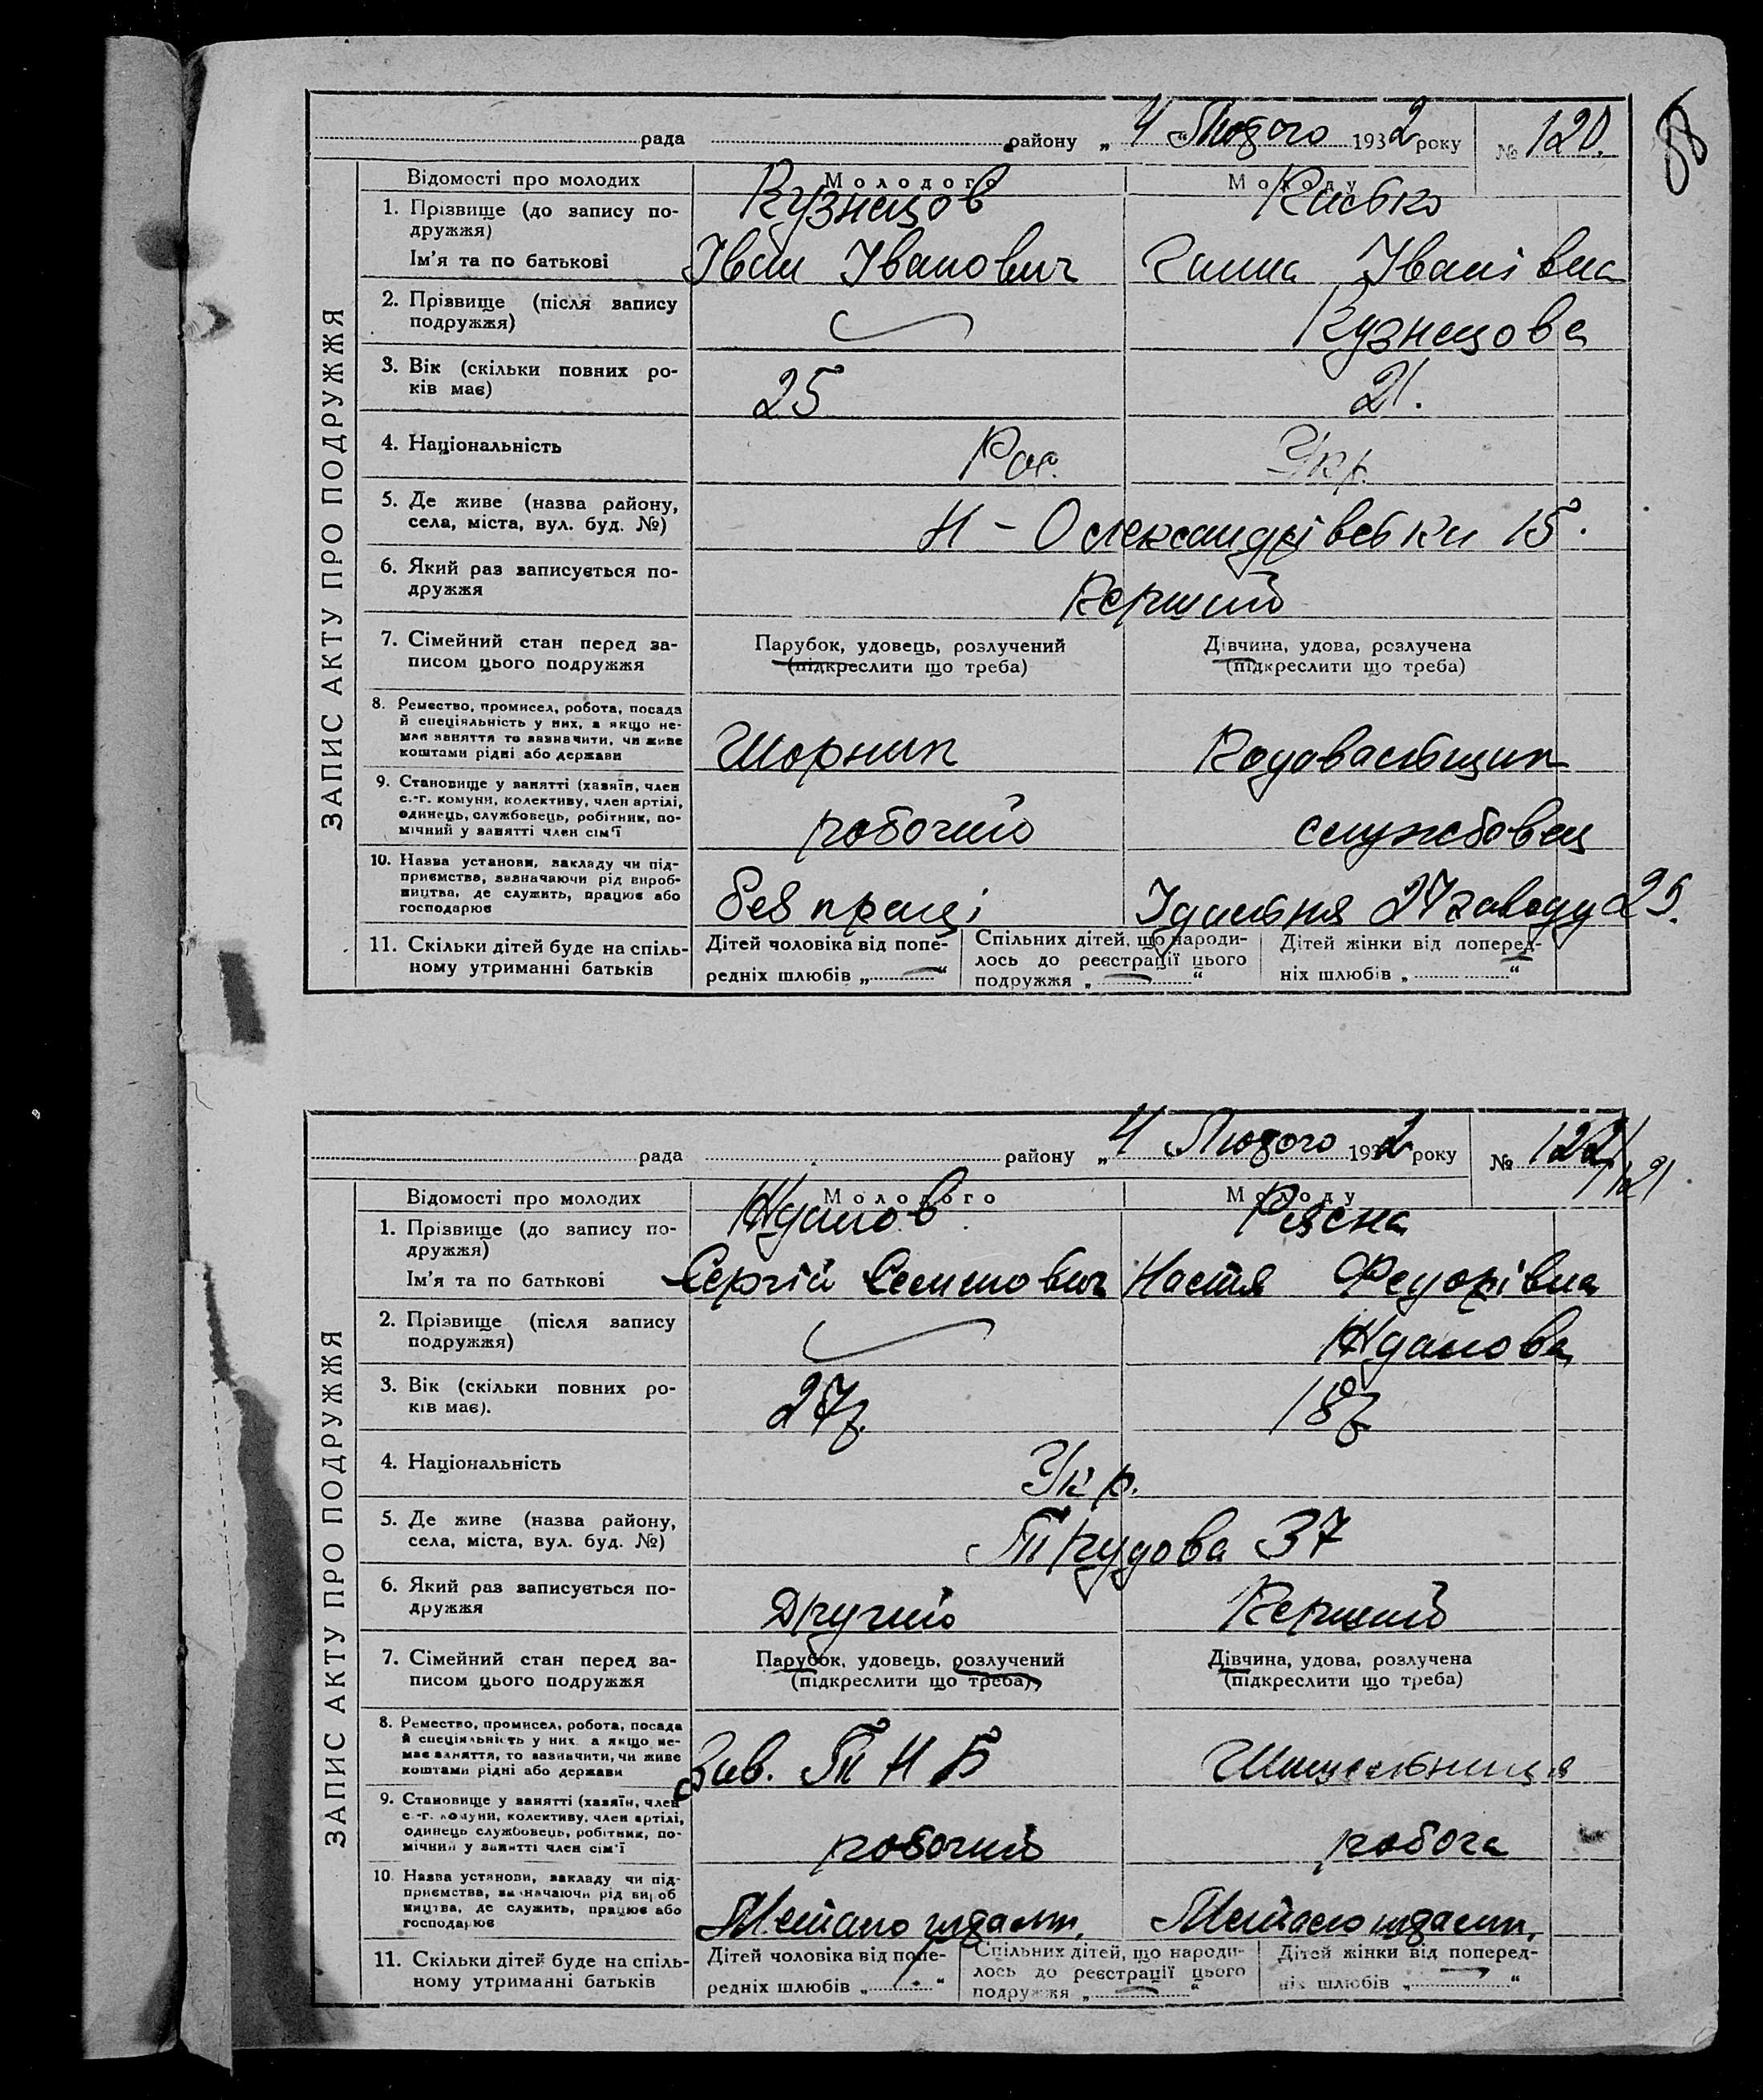 88
рада района „4" Лютого 1932 року № 120.
ЗАПИС АКТУ ПРО ПОДРУЖЖЯ
Відомості про молодих Молодого Молоду
1. Прізвище (до запису подружжя) Кузнецов
Ім'я та по батькові Іван Іванович Ганна Іванівна
2. Прізвище (після запису подружжя) Кузнецова
3. Вік (скільки повних років має) 25 21.
4. Національність Рос. Укр.
5. Де живе (назва району, села, міста, вул. буд. №) Н-Олександрівськи 15.
6. Який раз записується подружжя Перший
7. Сімейний стан перед записом цього подружжя Парубок, удовець, розлучений (підкреслити що треба) Дівчина, удова, розлучена (підкреслити що треба)
8. Ремество, промисел, робота, посада й спеціяльність у них, а якщо немає заняття то зазначити, чи живе коштами рідні або держави Шорник
9. Становище у занятті (хазяїн, член с.-г. комуни, колективу, член артілі, одинець, службовець, робітник, помічний у занятті член сім'ї робочий службовец
10. Назва установи, закладу чи підприємства, зазначаючи рід виробництва, де служить, працює або господарює без праці Їдальня 27 заводу 25.
11. Скільки дітей буде на спільному утриманні батьків Дітей чоловіка від попередніх шлюбів „ — " Спільних дітей, що народилось до реєстрації цього подружжя „ — " Дітей жінки від попередніх шлюбів „ — "
рада району „4 Лютого 1932 року № 122 121
ЗАПИС АКТУ ПРО ПОДРУЖЖЯ
Відомості про молодих Молодого Молоду
1. Прізвище (до запису подружжя) Жданов Рясна
Ім'я та по батькові Сергій Семенович Настя Федорівна
2. Прізвище (після запису подружжя) Жданова
3. Вік (скільки повних років має). 27р. 18р.
4. Національність Укр.
5. Де живе (назва району, села, міста, вул. буд. №) Трудова 37
6. Який раз записується подружжя Другий Перший
7. Сімейний стан перед записом цього подружжя Парубок, удовець, розлучений (підкреслити що треба) Дівчина, удова, розлучена (підкреслити що треба)
8. Ремество, промисел, робота, посада й спеціяльність у них а якщо немає заняття, то зазначити, чи живе коштами рідні або держави Зав. Т Н Б
9. Становище у занятті (хазяїн, член с.-г. комуни, колективу, член артілі, одинець службовець, робітник, помічний у занятті член сім'ї робочий робоча
10. Назва установи, закладу чи підприємства, зазначаючи рід виробництва, де служить, працює або господарює Металоштамп. Металоштамп.
11. Скільки дітей буде на спільному утриманні батьків Дітей чоловіка від попередніх шлюбів „ " Спільних дітей, що народилось до реєстрації цього подружжя „ — " Дітей жінки від попередніх шлюбів „ — "